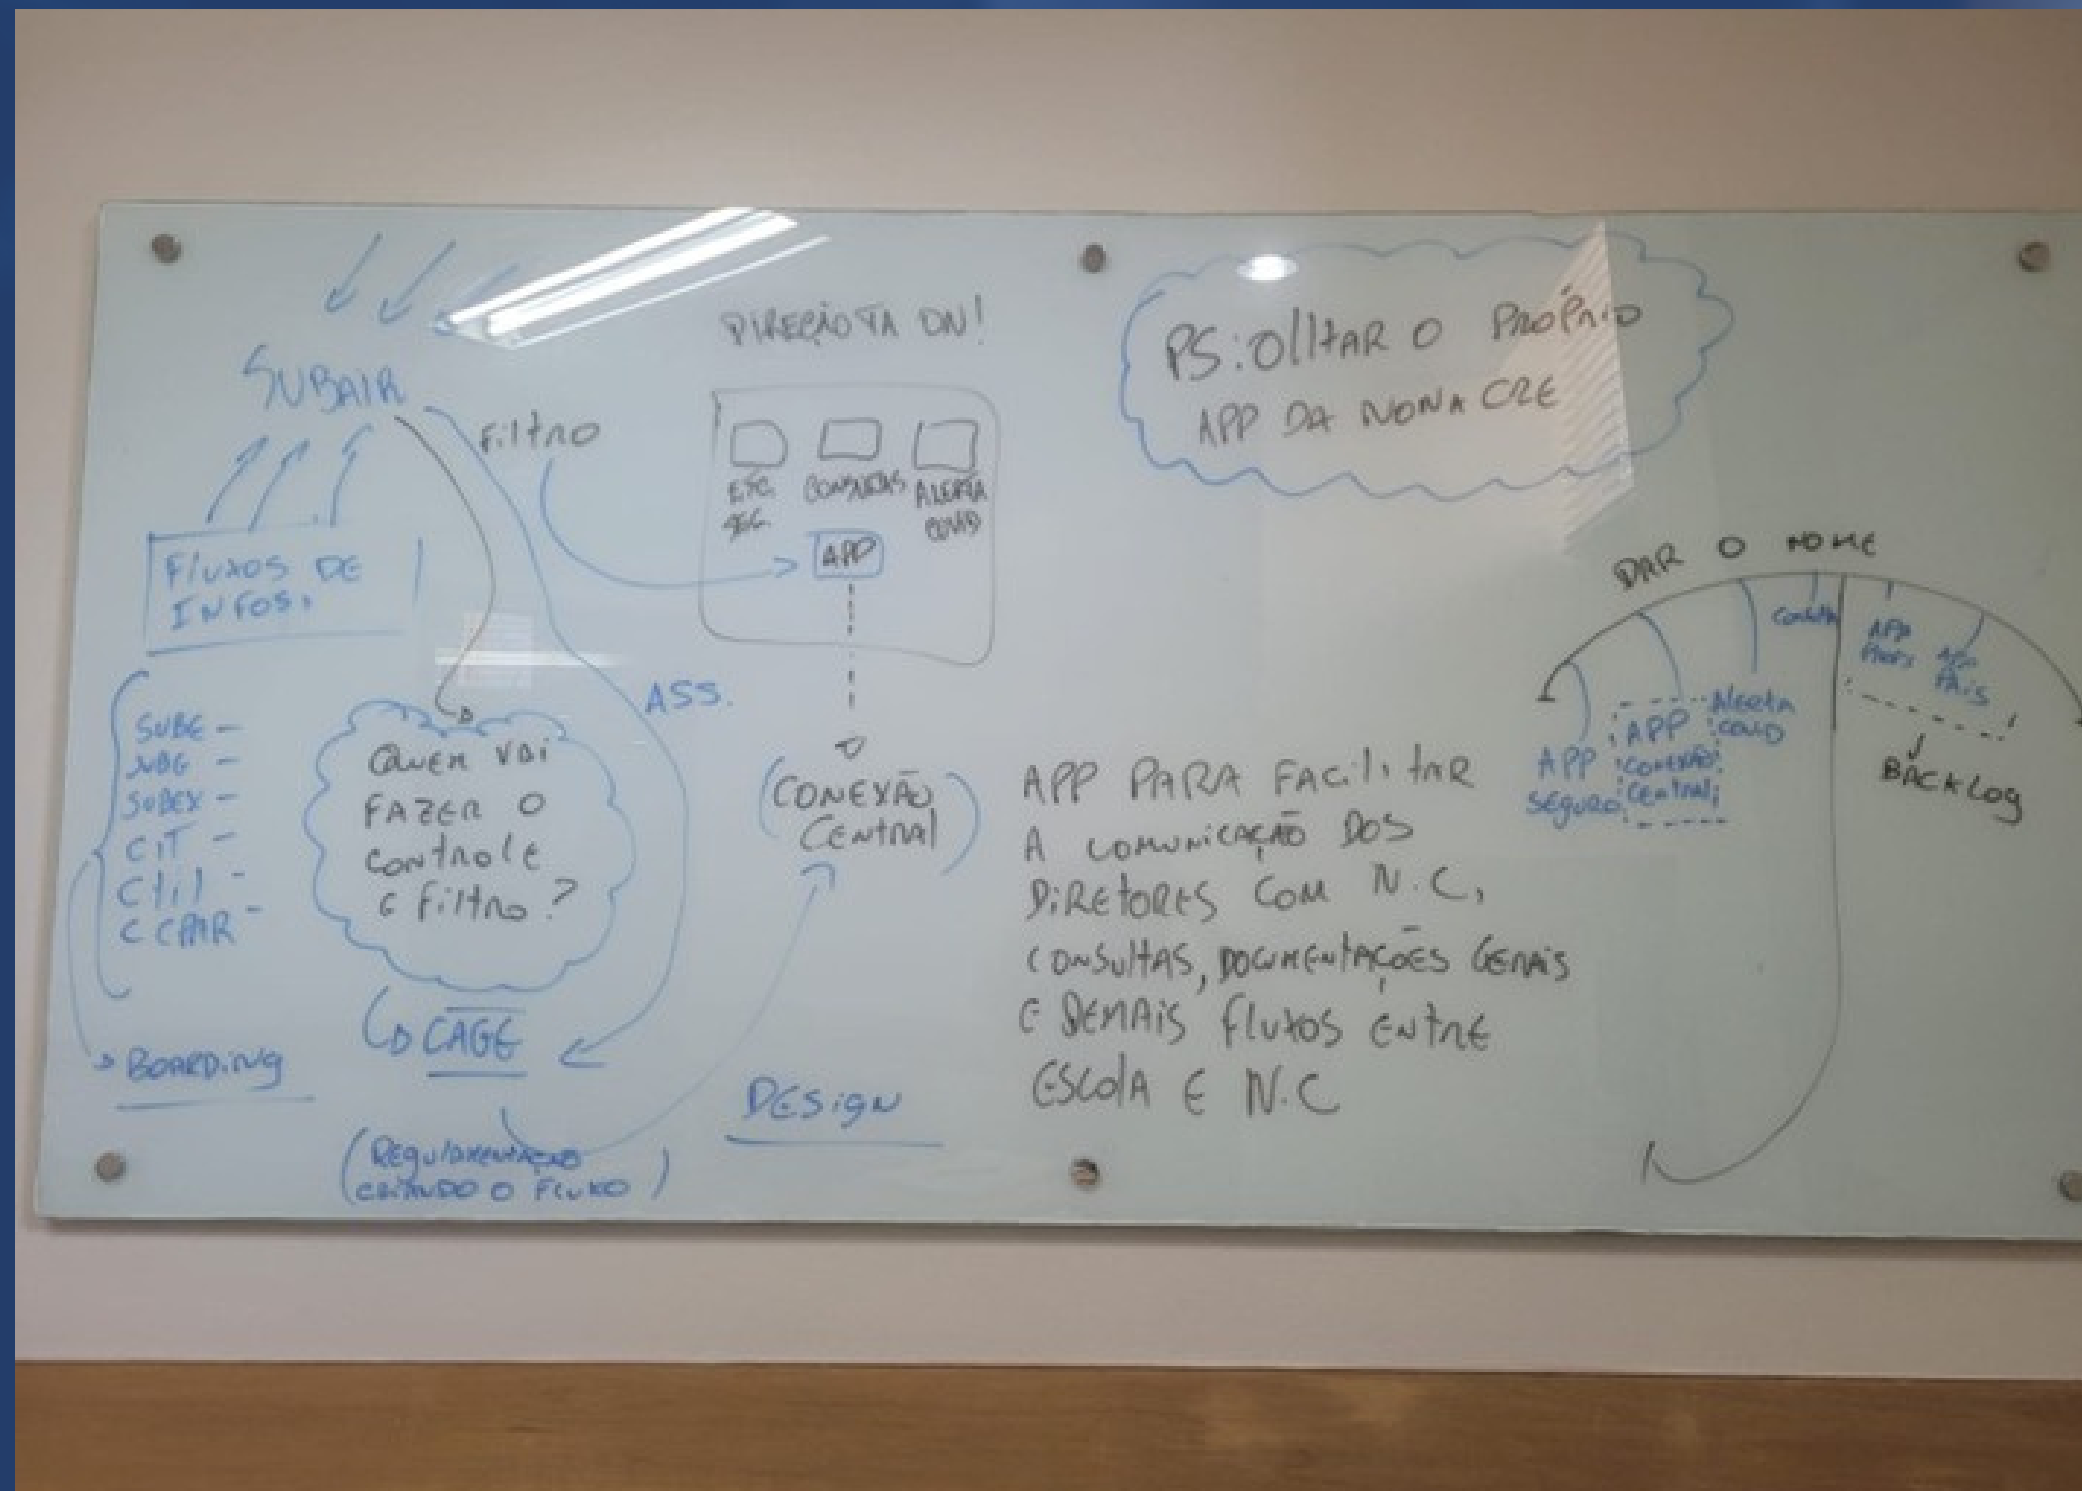 SUBAIR
FLUXOS DE
INFOS.
SUBE -
SUBG -
SUBEX -
CIT -
C CPAR -
BOARDING
Filtro
ASS.
QUEM VAI
FAZER O
CONTROLE
E FILTRO?
CAGE
(REGULAMENTAÇÃO
CRIANDO O FLUXO)
DIREÇÃO TA ON!
ESC. CONSULTAS ALERTA
SEG. COVID
APP
(CONEXÃO
CENTRAL)
DESIGN
PS: OLHAR O PRÓPRIO
APP DA NONA CRE
APP PARA FACILITAR
A COMUNICAÇÃO DOS
DIRETORES COM N.C,
CONSULTAS, DOCUMENTAÇÕES GERAIS
E DEMAIS FLUXOS ENTRE
ESCOLA E N.C
DAR O NOME
APP
SEGURO
APP
CONEXÃO
CENTRAL
Alerta
COVID
Consulta
APP
PROFS
APP
PAIS
BACKLOG